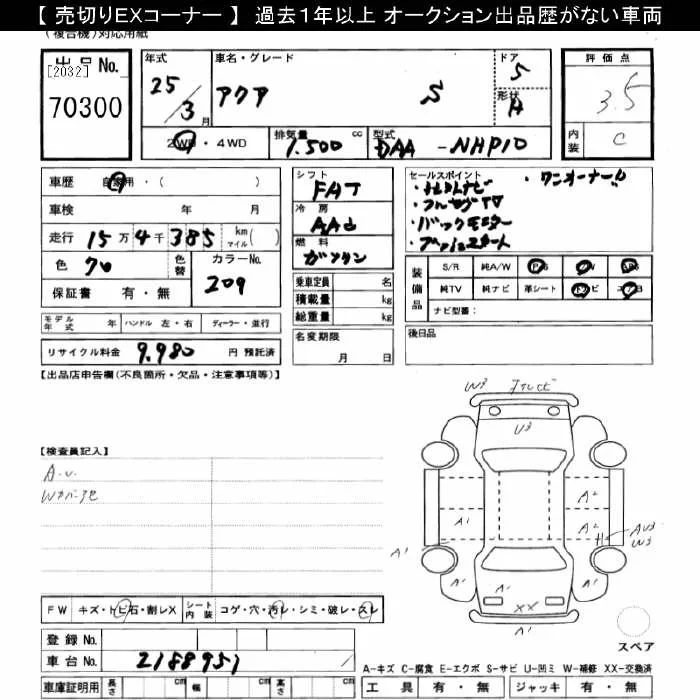 【 売切りEXコーナー 】 過去1年以上 オークション出品歴がない車両
(複合機)対応用紙
出品No.
[2032]
70300
年式
25/3月
車名・グレード
アクア S
ドア
5
形状
H
2WD・4WD
排気量 1.500 cc
型式 DAA - NHP10
評価点
3.5
内装 C
車歴 自家用・( )
車検 年 月
走行 15万4千385 km マイル( )
色 クロ 色替
カラーNo. 209
保証書 有・無
シフト
FAT
冷房
AAC
燃料
ガソリン
乗車定員 名
積載量
総重量
セールスポイント
・ワンオーナー
・フルセグTV
・バックモニター
・プッシュスタート
装備品
S/R 純A/W P/S P/W ABS
純TV 純ナビ 革シート ナビ エアB
ナビ型番:
モデル年式 年 ハンドル 左・右 ディーラー・並行
名変期限
月 日
後日品
リサイクル料金 9.980 円 預託済
【出品店申告欄(不良箇所・欠品・注意事項等)】
【検査員記入】
A.U.
W3
U3
A1
A2
A1
A2
AU3
W3
A1
A1
A1
A1
XX
A1
スペア
FW キズ・トビ石・割レX シート内装 コゲ・穴・汚レ・シミ・破レ・スレ
登録No.
車台No. 2188951
車庫証明用 長さ cm 幅 cm 高さ cm
A-キズ C-腐食 E-エクボ S-サビ U-凹ミ W-補修 XX-交換済
工具 有・無 ジャッキ 有・無